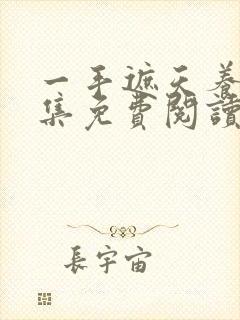 一手遮天養
集免費閱讀
長宇宙